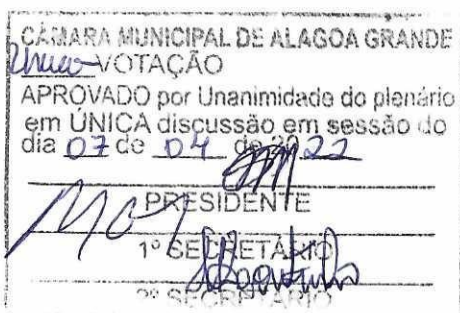 CÂMARA MUNICIPAL DE ALAGOA GRANDE
Única VOTAÇÃO
APROVADO por Unanimidade do plenário
em ÚNICA discussão em sessão do
dia 07 de 04 de 2022
PRESIDENTE
1º SECRETÁRIO
2º SECRETÁRIO